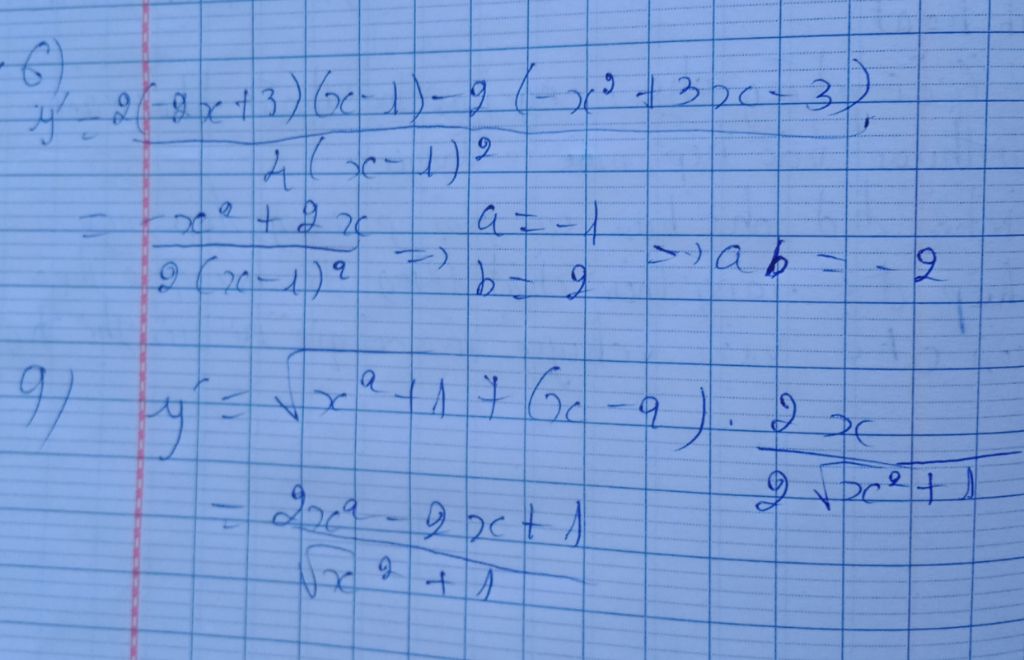 6)
y' = 2(-2x+3)(x-1) - 2(-x²+3x-3)
4(x-1)²
= -x²+2x / 2(x-1)² => a = -1 b = 2 => ab = -2
9) y' = √x²+1 + (x-2) . 2x / 2√x²+1
= 2x²-2x+1 / √x²+1